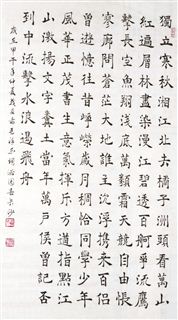 獨立寒秋湘江北去橘子洲頭看萬山
紅遍層林盡染漫江碧透百舸爭流鷹
擊長空魚翔淺底萬類霜天競自由悵
寥廓問蒼茫大地誰主沉浮攜來百侶
曾遊憶往昔崢嶸歲月稠恰同學少年
風華正茂書生意氣揮斥方遒指點江
山激揚文字糞土當年萬戶侯曾記否
到中流擊水浪遏飛舟
歲在甲午年仲夏 沁園春長沙